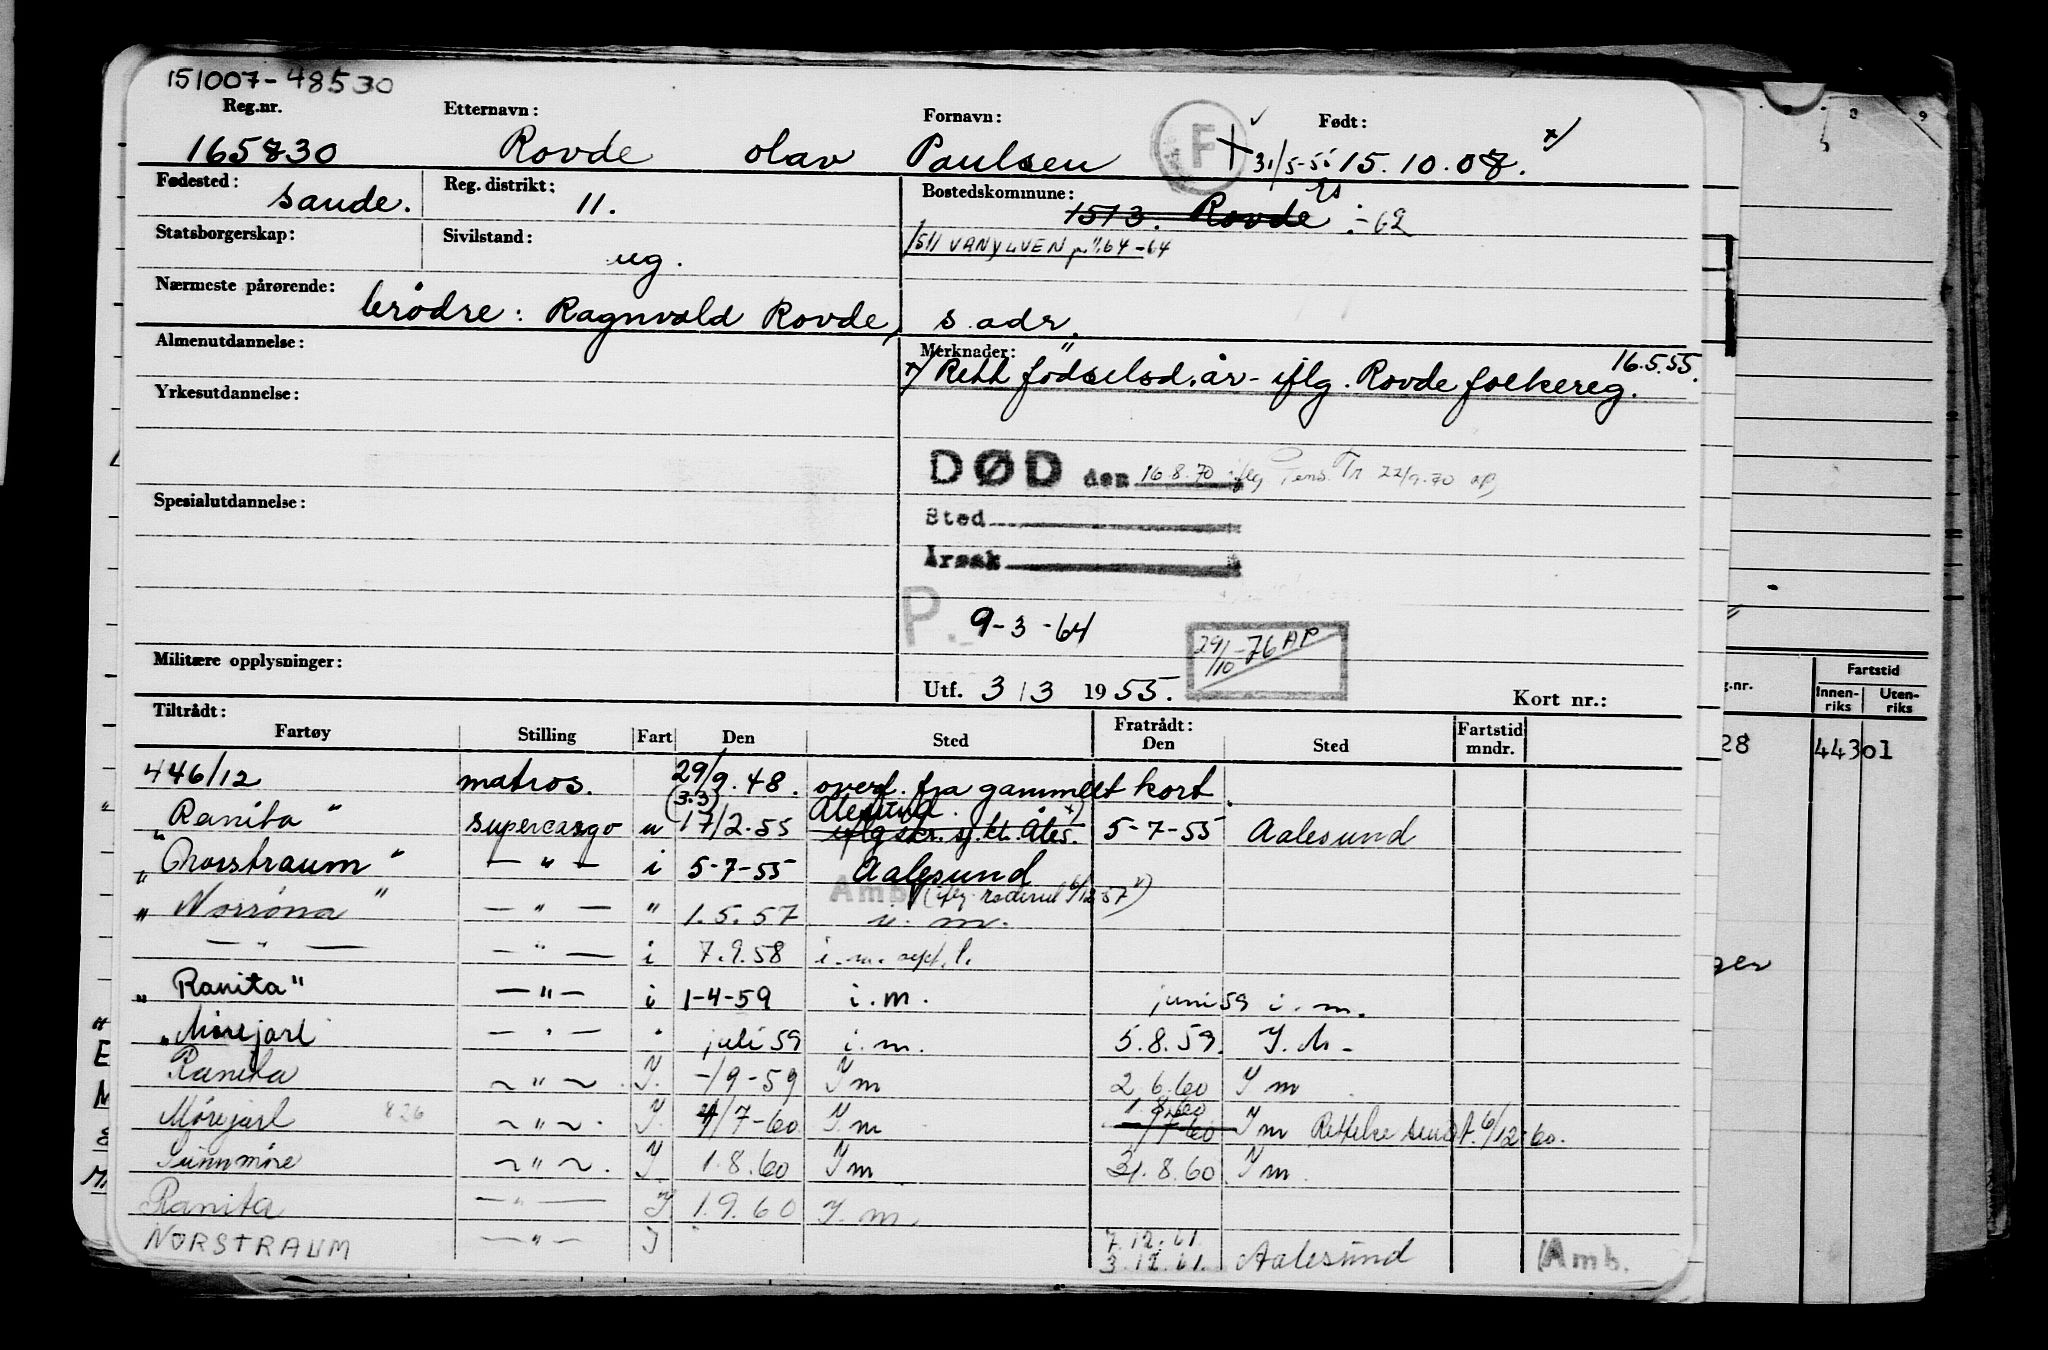 151007-48530
Reg.nr. Etternavn: Fornavn: F Født:
165830 Rovde olav Paulsen 31/5-55 15.10.07. x)
Fødested: Reg. distrikt: Bostedskommune:
Sande. 11. 1513. Rovde -62
Statsborgerskap: Sivilstand: 1511 VANYLVEN 64-64
ug.
Nærmeste pårørende:
brødre: Ragnvald Rovde, s. adr.
Almenutdannelse: Merknader: 16.5.55.
x) Rett fødselsd.år - iflg. Rovde folkereg.
Yrkesutdannelse:
DØD den 16.8.70 iflg Pens. Tr 22/9-70 ap,
Spesialutdannelse: Sted
Årsak
P. 9-3-64
29/10-76 AP
Militære opplysninger:
Utf. 3/3 1955. Kort nr.:
Tiltrådt: Fratrådt:
Fartøy Stilling Fart Den Sted Den Sted Fartstid mndr.
446/12 matros. 29/9.48. overf. fra gammelt kort.
(3.3) Alesund.
"Ranita" supercargo u 17/2-55 iflg skr. sj.kt. Åles. x) 5-7-55 Aalesund
"Norstraum" — " — i 5-7-55 Aalesund
Amb. (iflg. rederiet 6/12 57)
"Norrøna" — " — " 1.5.57 i. m.
— " — — " — i 7.9.58 i. m. sept. l.
"Ranita" — " — i 1-4-59 i.m. juni 59 i. m.
"Mørejarl — " — " juli 59 i. m. 5.8.59. I. M-
Ranita ~ " ~ . I. -/9-59 I m 2 6.60 I m
1.8.60
Mørejarl 826 ~ " ~ . I. /7-60 I m /7-60 I m Rettelse sendt. 6/12-60.
Sunnmøre ~ " ~ . I 1.8.60 I m 31.8.60 I m
Ranita — " — I 1.9.60 I. m
7.12.61.
NORSTRAUM — " — I 3.12.61. Aalesund Amb.
g.nr. Fartstid
Innen-riks Uten-riks
28 44301